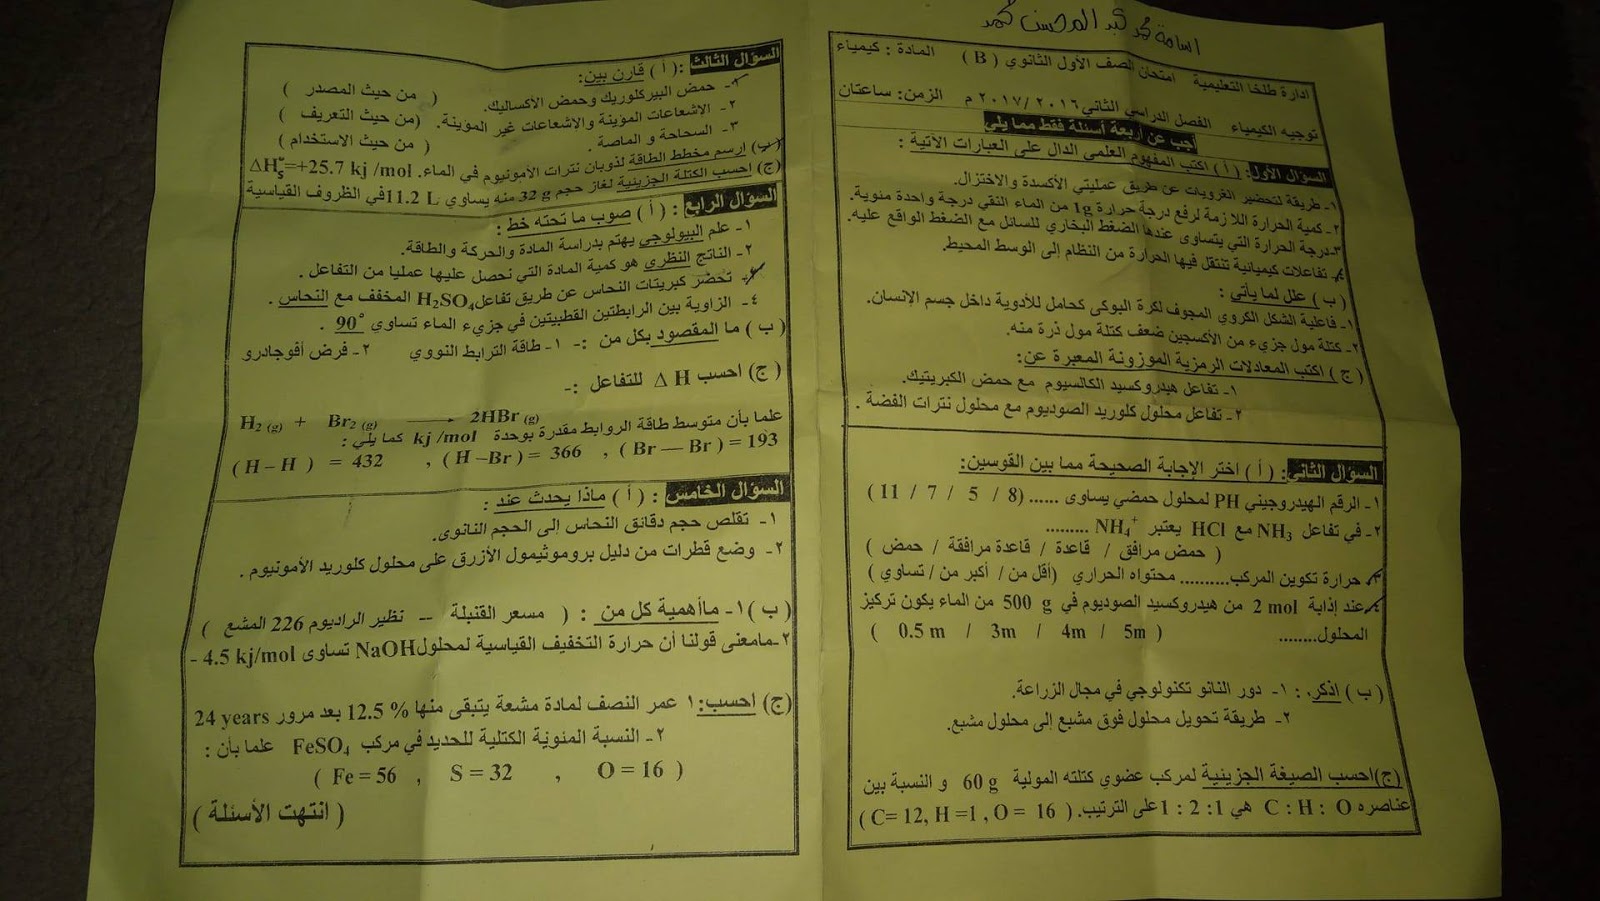 اسامة محمد عبد المحسن محمد
ادارة طلخا التعليمية امتحان الصف الأول الثانوي ( B ) المادة : كيمياء
توجيه الكيمياء الفصل الدراسي الثاني ٢٠١٦ / ٢٠١٧ م الزمن: ساعتان
أجب عن أربعة أسئلة فقط مما يلي
السؤال الأول: ( أ ) اكتب المفهوم العلمي الدال على العبارات الآتية :
١- طريقة لتحضير الغرويات عن طريق عمليتي الأكسدة والاختزال.
٢- كمية الحرارة اللازمة لرفع درجة حرارة 1g من الماء النقي درجة واحدة منوية.
٣- درجة الحرارة التي يتساوى عندها الضغط البخاري للسائل مع الضغط الواقع عليه.
٤- تفاعلات كيميائية تنتقل فيها الحرارة من النظام إلى الوسط المحيط.
( ب ) علل لما يأتي :
١- فاعلية الشكل الكروي المجوف لكرة البوكى كحامل للأدوية داخل جسم الإنسان.
٢- كتلة مول جزيء من الأكسجين ضعف كتلة مول ذرة منه.
( ج ) اكتب المعادلات الرمزية الموزونة المعبرة عن:
١- تفاعل هيدروكسيد الكالسيوم مع حمض الكبريتيك.
٢- تفاعل محلول كلوريد الصوديوم مع محلول نترات الفضة .
السؤال الثاني: ( أ ) اختر الإجابة الصحيحة مما بين القوسين:
١- الرقم الهيدروجيني PH لمحلول حمضي يساوى ...... ( 8 / 5 / 7 / 11 )
٢- في تفاعل NH3 مع HCl يعتبر NH4+ .........
( حمض مرافق / قاعدة / قاعدة مرافقة / حمض )
٣- حرارة تكوين المركب.......... محتواه الحراري (أقل من / أكبر من / تساوي )
٤- عند إذابة 2 mol من هيدروكسيد الصوديوم في 500 g من الماء يكون تركيز
المحلول........ ( 0.5 m / 3m / 4m / 5m )
( ب ) اذكر : ١- دور النانو تكنولوجي في مجال الزراعة.
٢- طريقة تحويل محلول فوق مشبع إلى محلول مشبع.
(ج) احسب الصيغة الجزينية لمركب عضوي كتلته المولية 60 g و النسبة بين
عناصره C : H : O هي 1 : 2 : 1 على الترتيب. ( C= 12, H =1 , O = 16 )
السؤال الثالث : ( أ ) قارن بين:
١- حمض البيركلوريك وحمض الأكساليك. ( من حيث المصدر )
٢- الإشعاعات المؤينة والإشعاعات غير المؤينة. (من حيث التعريف )
٣- السحاحة و الماصة . ( من حيث الاستخدام )
(ب) إرسم مخطط الطاقة لذوبان نترات الأمونيوم في الماء. ΔH°s=+25.7 kj /mol
(ج) إحسب الكتلة الجزينية لغاز حجم 32 g منه يساوي 11.2 L في الظروف القياسية
السؤال الرابع : ( أ ) صوب ما تحته خط :
١- علم البيولوجي يهتم بدراسة المادة والحركة والطاقة.
٢- الناتج النظري هو كمية المادة التي نحصل عليها عمليا من التفاعل .
٣- تحضر كبريتات النحاس عن طريق تفاعل H2SO4 المخفف مع النحاس .
٤- الزاوية بين الرابطتين القطبيتين في جزيء الماء تساوي 90° .
( ب ) ما المقصود بكل من :- ١- طاقة الترابط النووي ٢- فرض أفوجادرو
( ج ) احسب Δ H للتفاعل :-
H2 (g) + Br2 (g) ⟶ 2HBr (g)
علما بأن متوسط طاقة الروابط مقدرة بوحدة kj /mol كما يلي :
( H – H ) = 432 , ( H –Br ) = 366 , ( Br — Br ) = 193
السؤال الخامس : ( أ ) ماذا يحدث عند :
١- تقلص حجم دقائق النحاس إلى الحجم النانوى.
٢- وضع قطرات من دليل بروموثيمول الأزرق على محلول كلوريد الأمونيوم .
( ب ) ١- ماأهمية كل من : ( مسعر القنبلة -- نظير الراديوم 226 المشع )
٢- مامعنى قولنا أن حرارة التخفيف القياسية لمحلول NaOH تساوى 4.5 kj/mol -
(ج) إحسب: ١ عمر النصف لمادة مشعة يتبقى منها % 12.5 بعد مرور 24 years
٢- النسبة المنوية الكتلية للحديد في مركب FeSO4 علما بأن :
( Fe = 56 , S = 32 , O = 16 )
( انتهت الأسئلة )